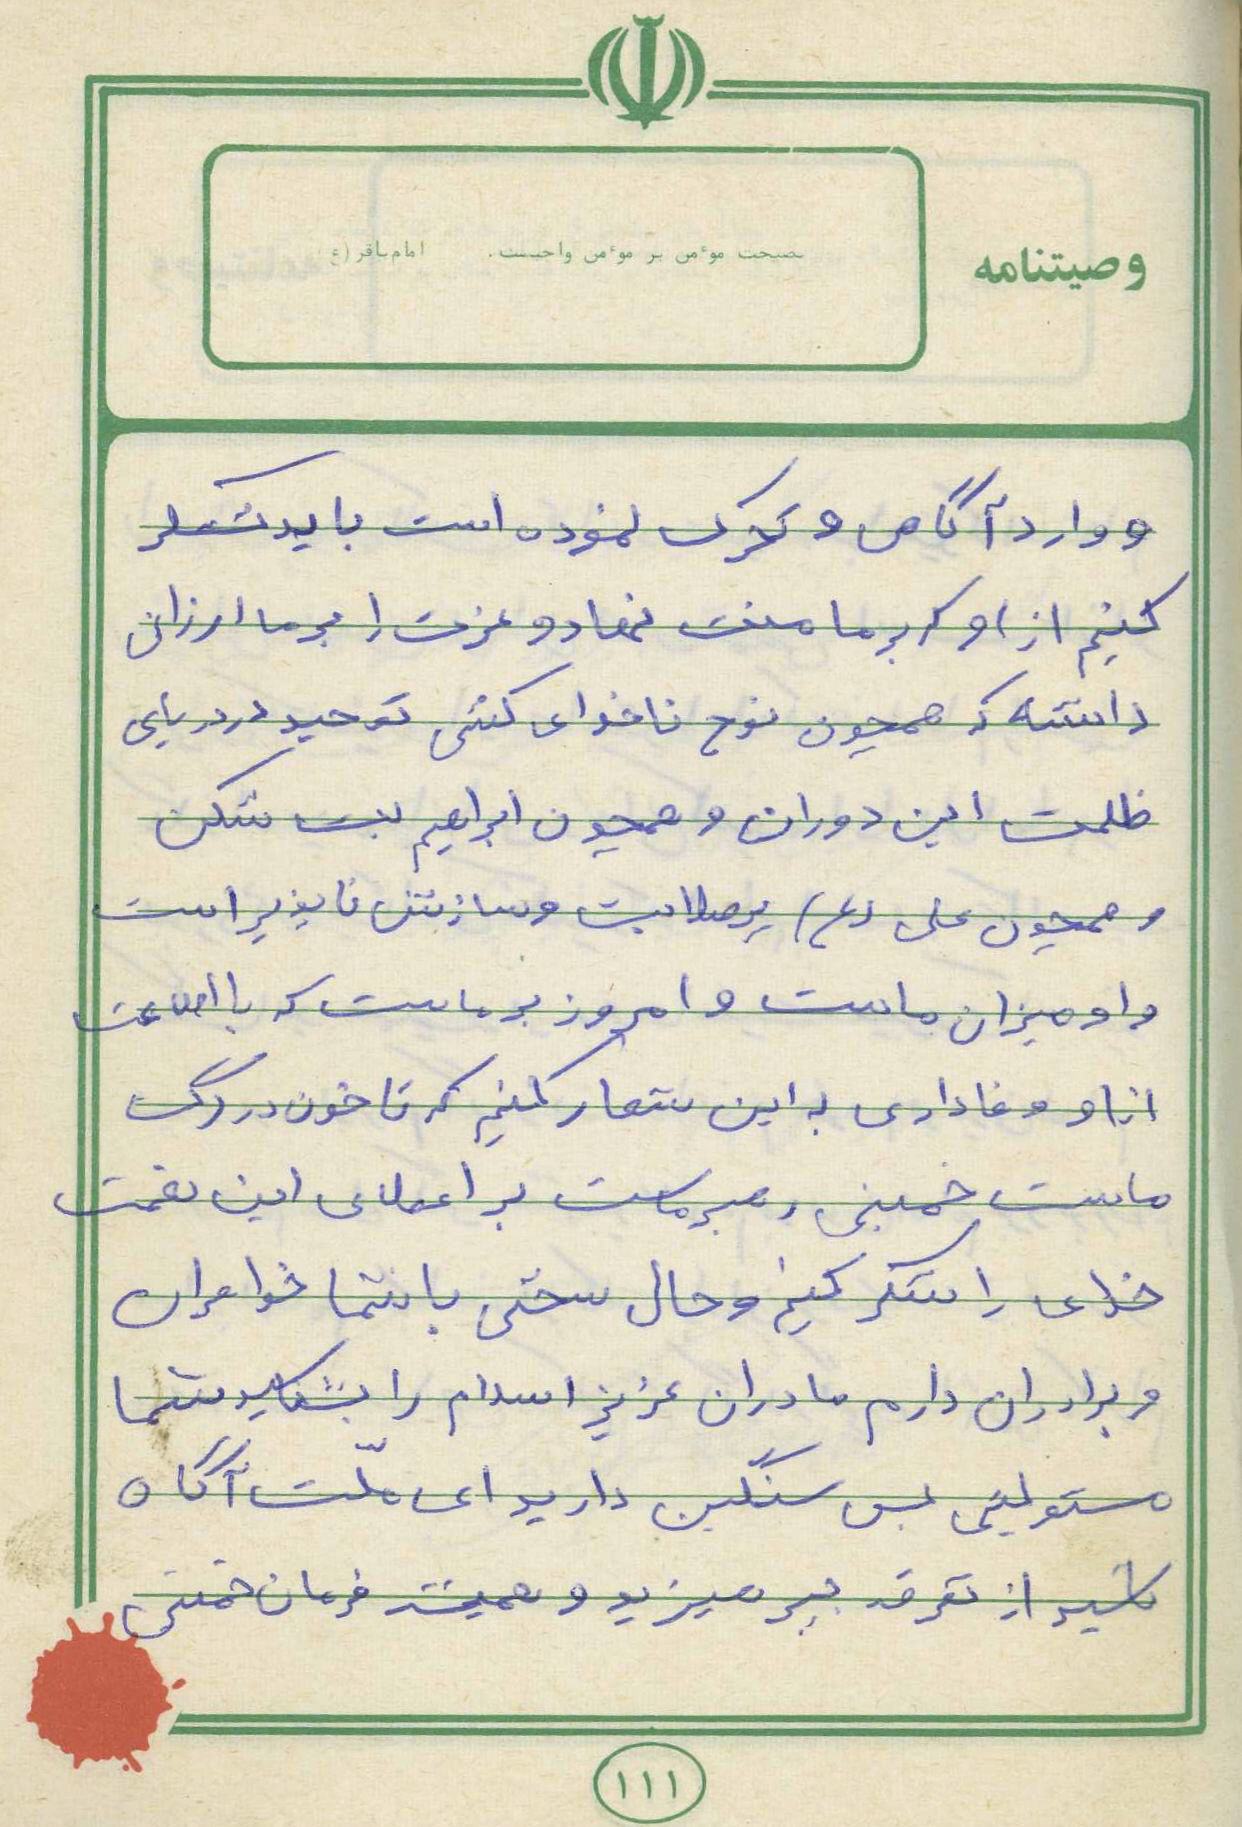 وصیتنامه
نصیحت موءمن بر موءمن واجبست. امام باقر (ع)
و وارد آگاهی و تحرک نموده است باید تشکر
کنیم از او که بر ما منت نهاد و عزت را بر ما ارزانی
داشته که همچون نوح ناخدای کشتی توحید در دریای
ظلمت این دوران و همچون ابراهیم بت شکن
و همچون علی (ع) پرصلابت و سازش ناپذیر است
و او میزان ماست و امروز بر ماست که با اطاعت
از او و وفاداری به این شعار کنیم که تا خون در رگ
ماست خمینی رهبر ماست بر اعطای این نعمت
خدای را شکر کنیم و حال سخنی با شما خواهران
و برادران دارم مادران عزیز اسلام را بشناسید شما
مسئولیتی بس سنگین دارید ای ملّت آگاه
باشید از تفرقه بپرهیزید و همیشه فرمان خمینی
۱۱۱